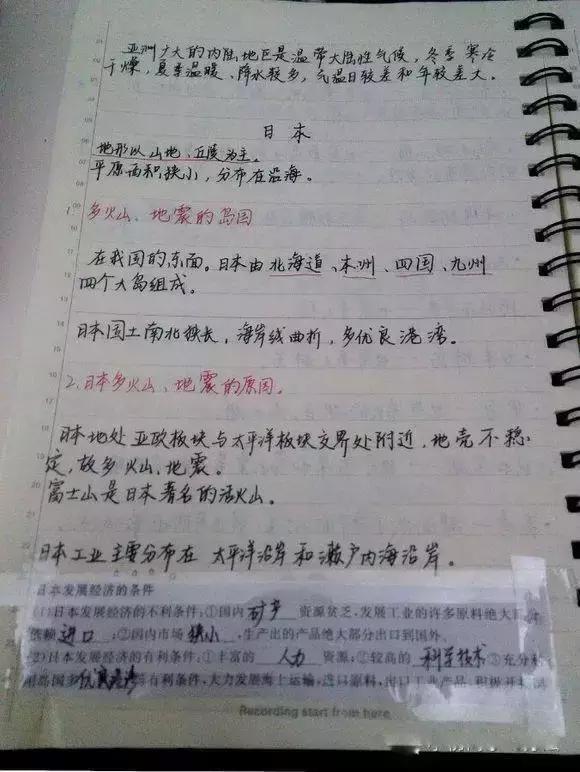 亚洲广大的内陆地区是温带大陆性气候，冬季寒冷
干燥，夏季温暖、降水较多，气温日较差和年较差大。
日本
地形以山地、丘陵为主，
平原面积狭小，分布在沿海。
1、多火山、地震的岛国
在我国的东面。日本由北海道、本州、四国、九州
四个大岛组成。
日本国土南北狭长，海岸线曲折，多优良港湾。
2、日本多火山、地震的原因。
日本地处亚欧板块与太平洋板块交界处附近，地壳不稳
定，故多火山、地震。
富士山是日本著名的活火山。
日本工业主要分布在太平洋沿岸和濑户内海沿岸。
日本发展经济的条件
(1)日本发展经济的不利条件:①国内矿产资源贫乏,发展工业的许多原料绝大部分
依赖进口;②国内市场狭小,生产出的产品绝大部分出口到国外。
(2)日本发展经济的有利条件:①丰富的人力资源;②较高的科学技术③充分利
用岛国多优良港湾等有利条件,大力发展海上运输,进口原料,出口工业产品,积极开拓
Recording start from here